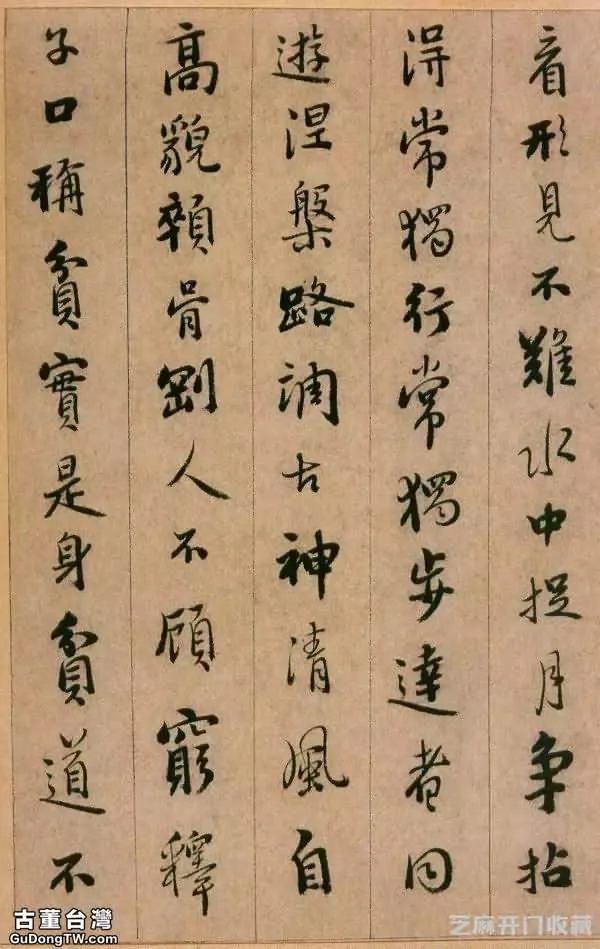 看形見不難水中捉月争拈
得常獨行常獨步達者同
遊涅槃路調古神清風自
高貌顇骨剛人不顧窮釋
子口稱貧實是身貧道不
古董台灣
GuDongTW.com
芝麻开门收藏